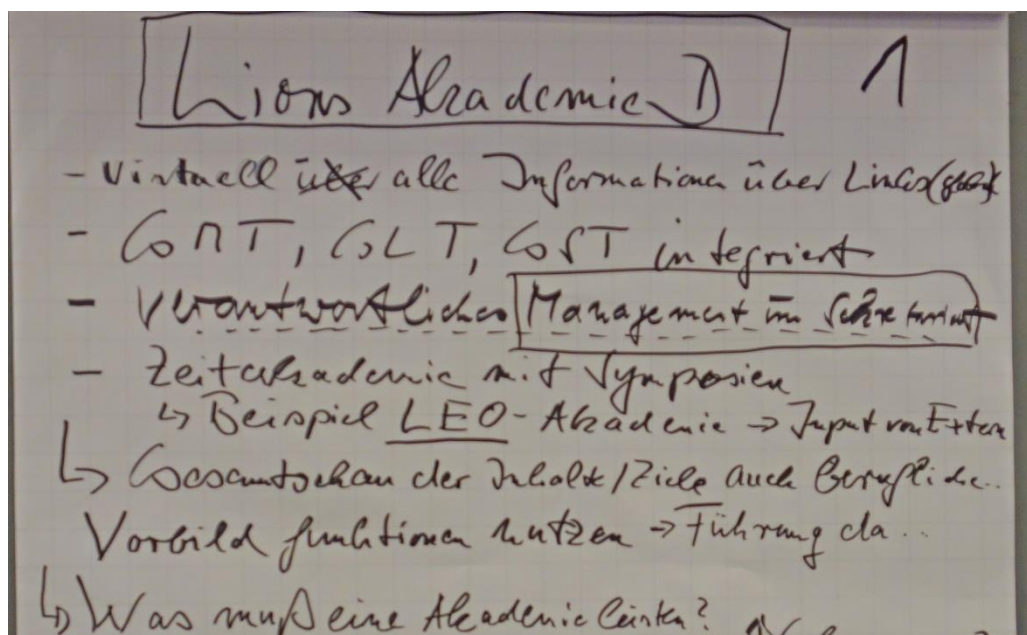 Lions Akademie D 1
- Virtuell über alle Informationen über Links
- GMT, GLT, GST integriert
- Verantwortliches Management im Sekretariat
- Zeitakademie mit Symposien
↳ Beispiel LEO-Akademie → Input von Extern
↳ Gesamtschau der Inhalte/Ziele auch berufliche..
Vorbildfunktionen nutzen → Führung da..
↳ Was muß eine Akademie leisten?